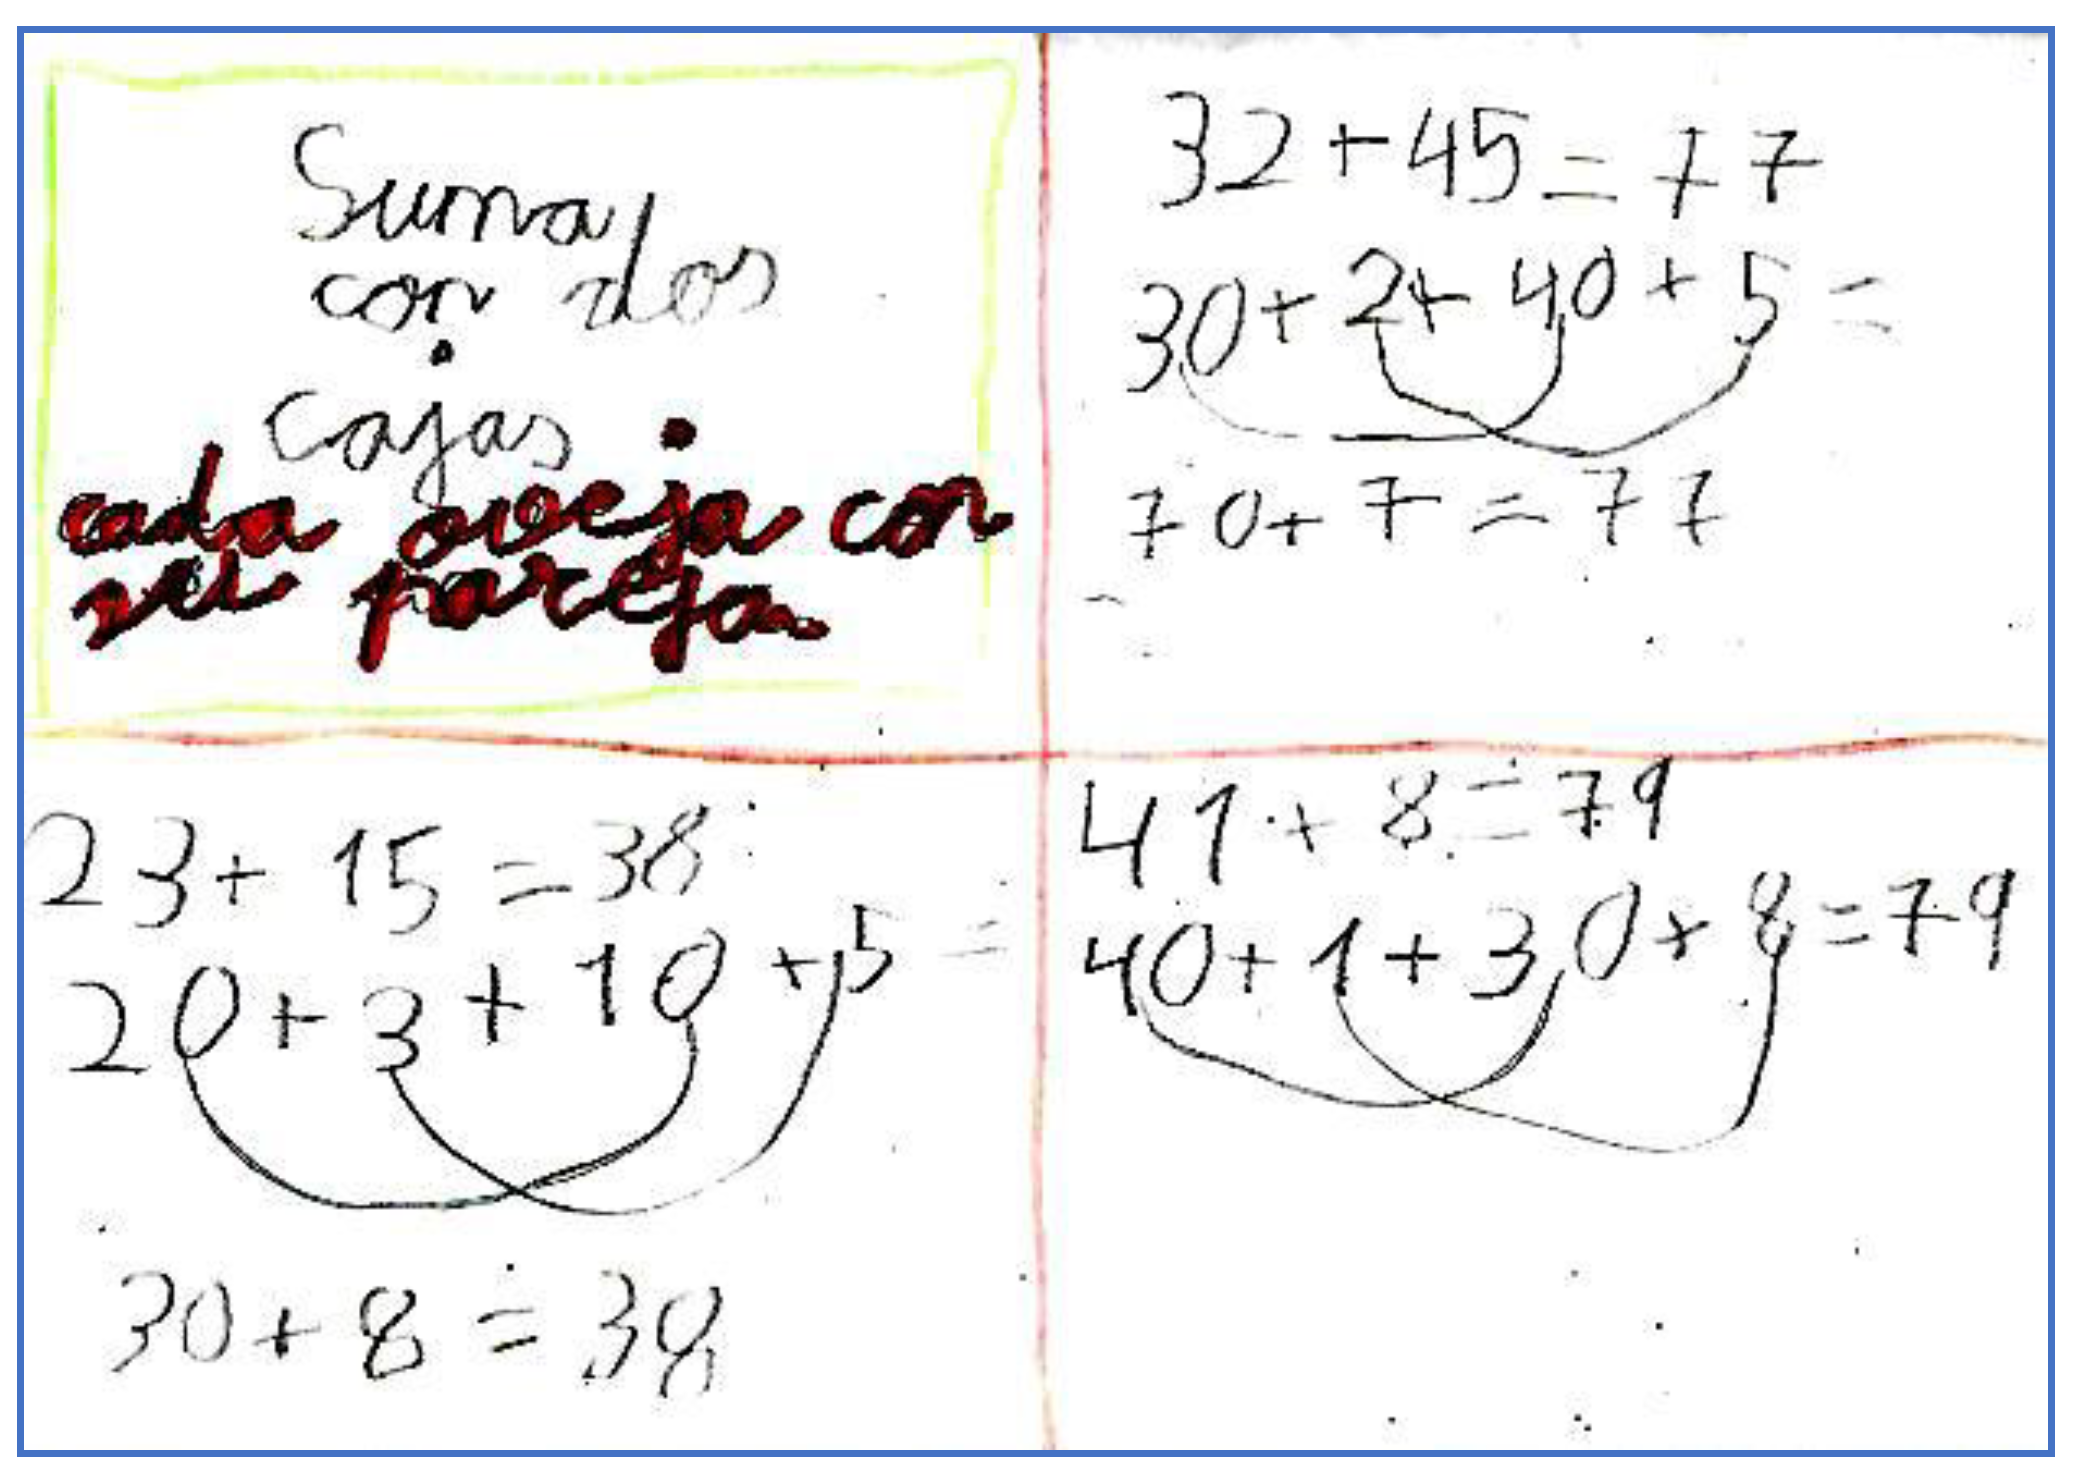 Suma
con dos
cajas
cada oveja con
su pareja
32+45=77
30+2+40+5=
70+7=77
23+15=38
20+3+10+5=
30+8=38
41+8=79
40+1+30+8=79